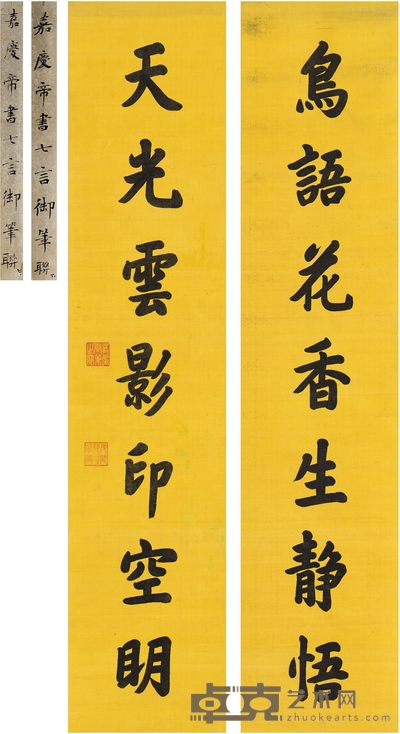 鳥語花香生静悟
天光雲影印空明
嘉慶帝書七言御筆聯
嘉慶帝書七言御筆聯
卓克艺术网
zhuokearts.com